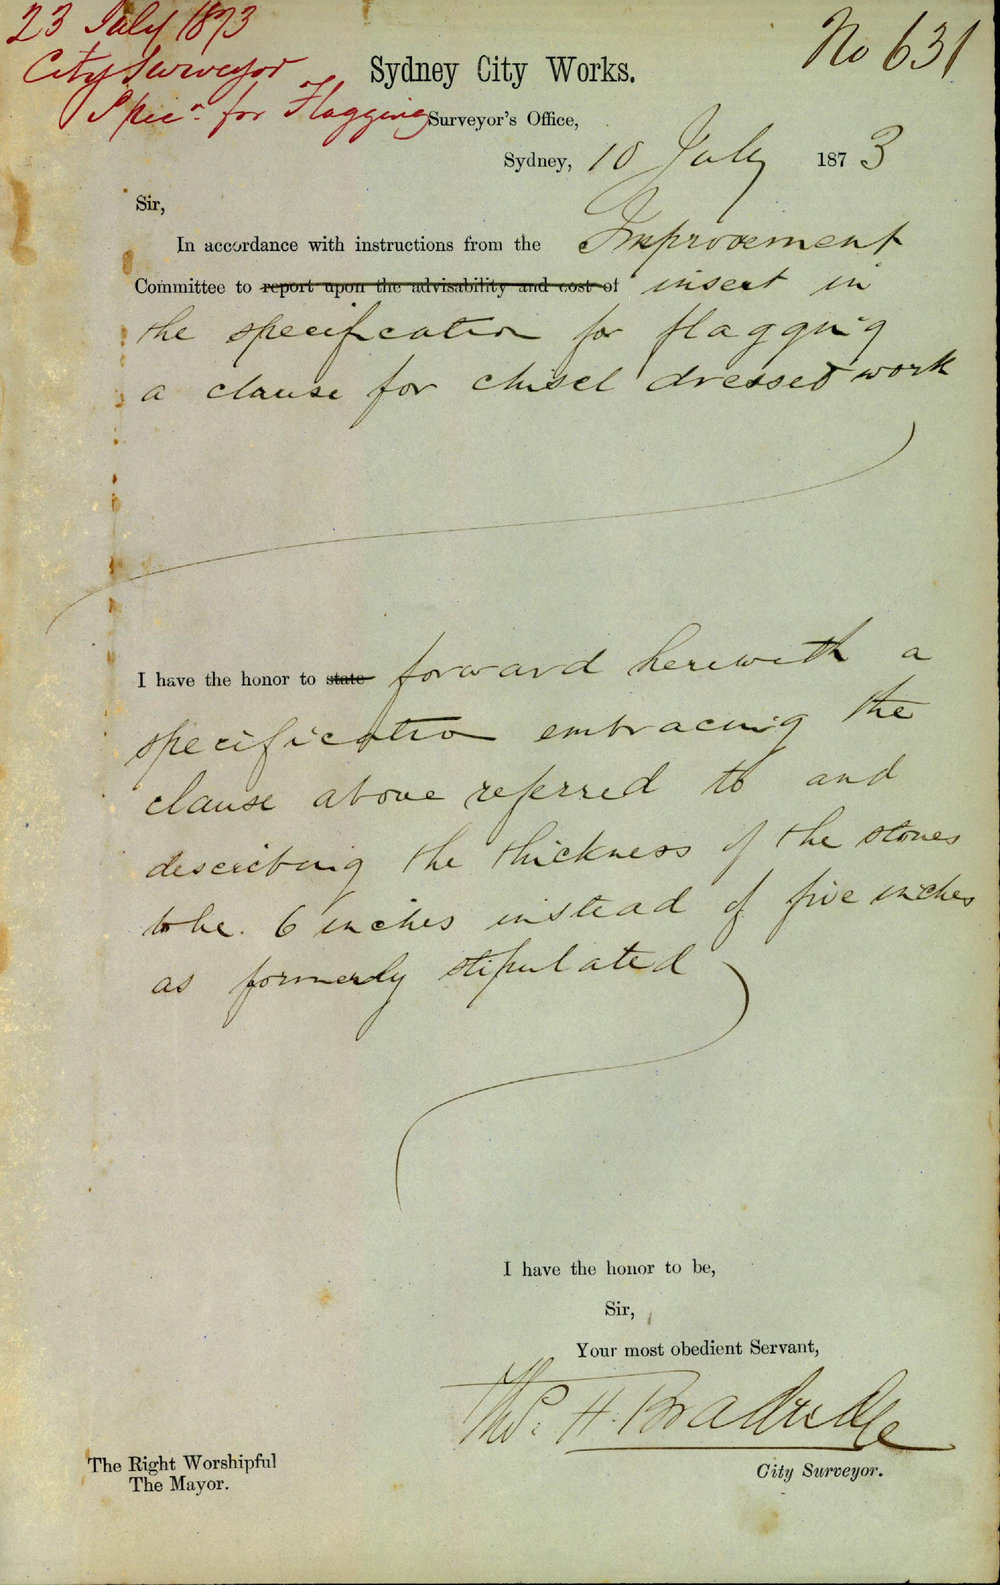 23 July 1873
City Surveyor
Specn. for Flagging
No 631
Sydney City Works.
Surveyor's Office,
Sydney, 10 July 1873
Sir,
In accordance with instructions from the Improvement
Committee to report upon the advisability and cost of insert in
the specification for flagging
a clause for chisel dressed work
I have the honor to state forward herewith a
specification embracing the
clause above referred to and
describing the thickness of the stones
to be. 6 inches instead of five inches
as formerly stipulated
I have the honor to be,
Sir,
Your most obedient Servant,
Thos. H. Bradridge
City Surveyor.
The Right Worshipful
The Mayor.